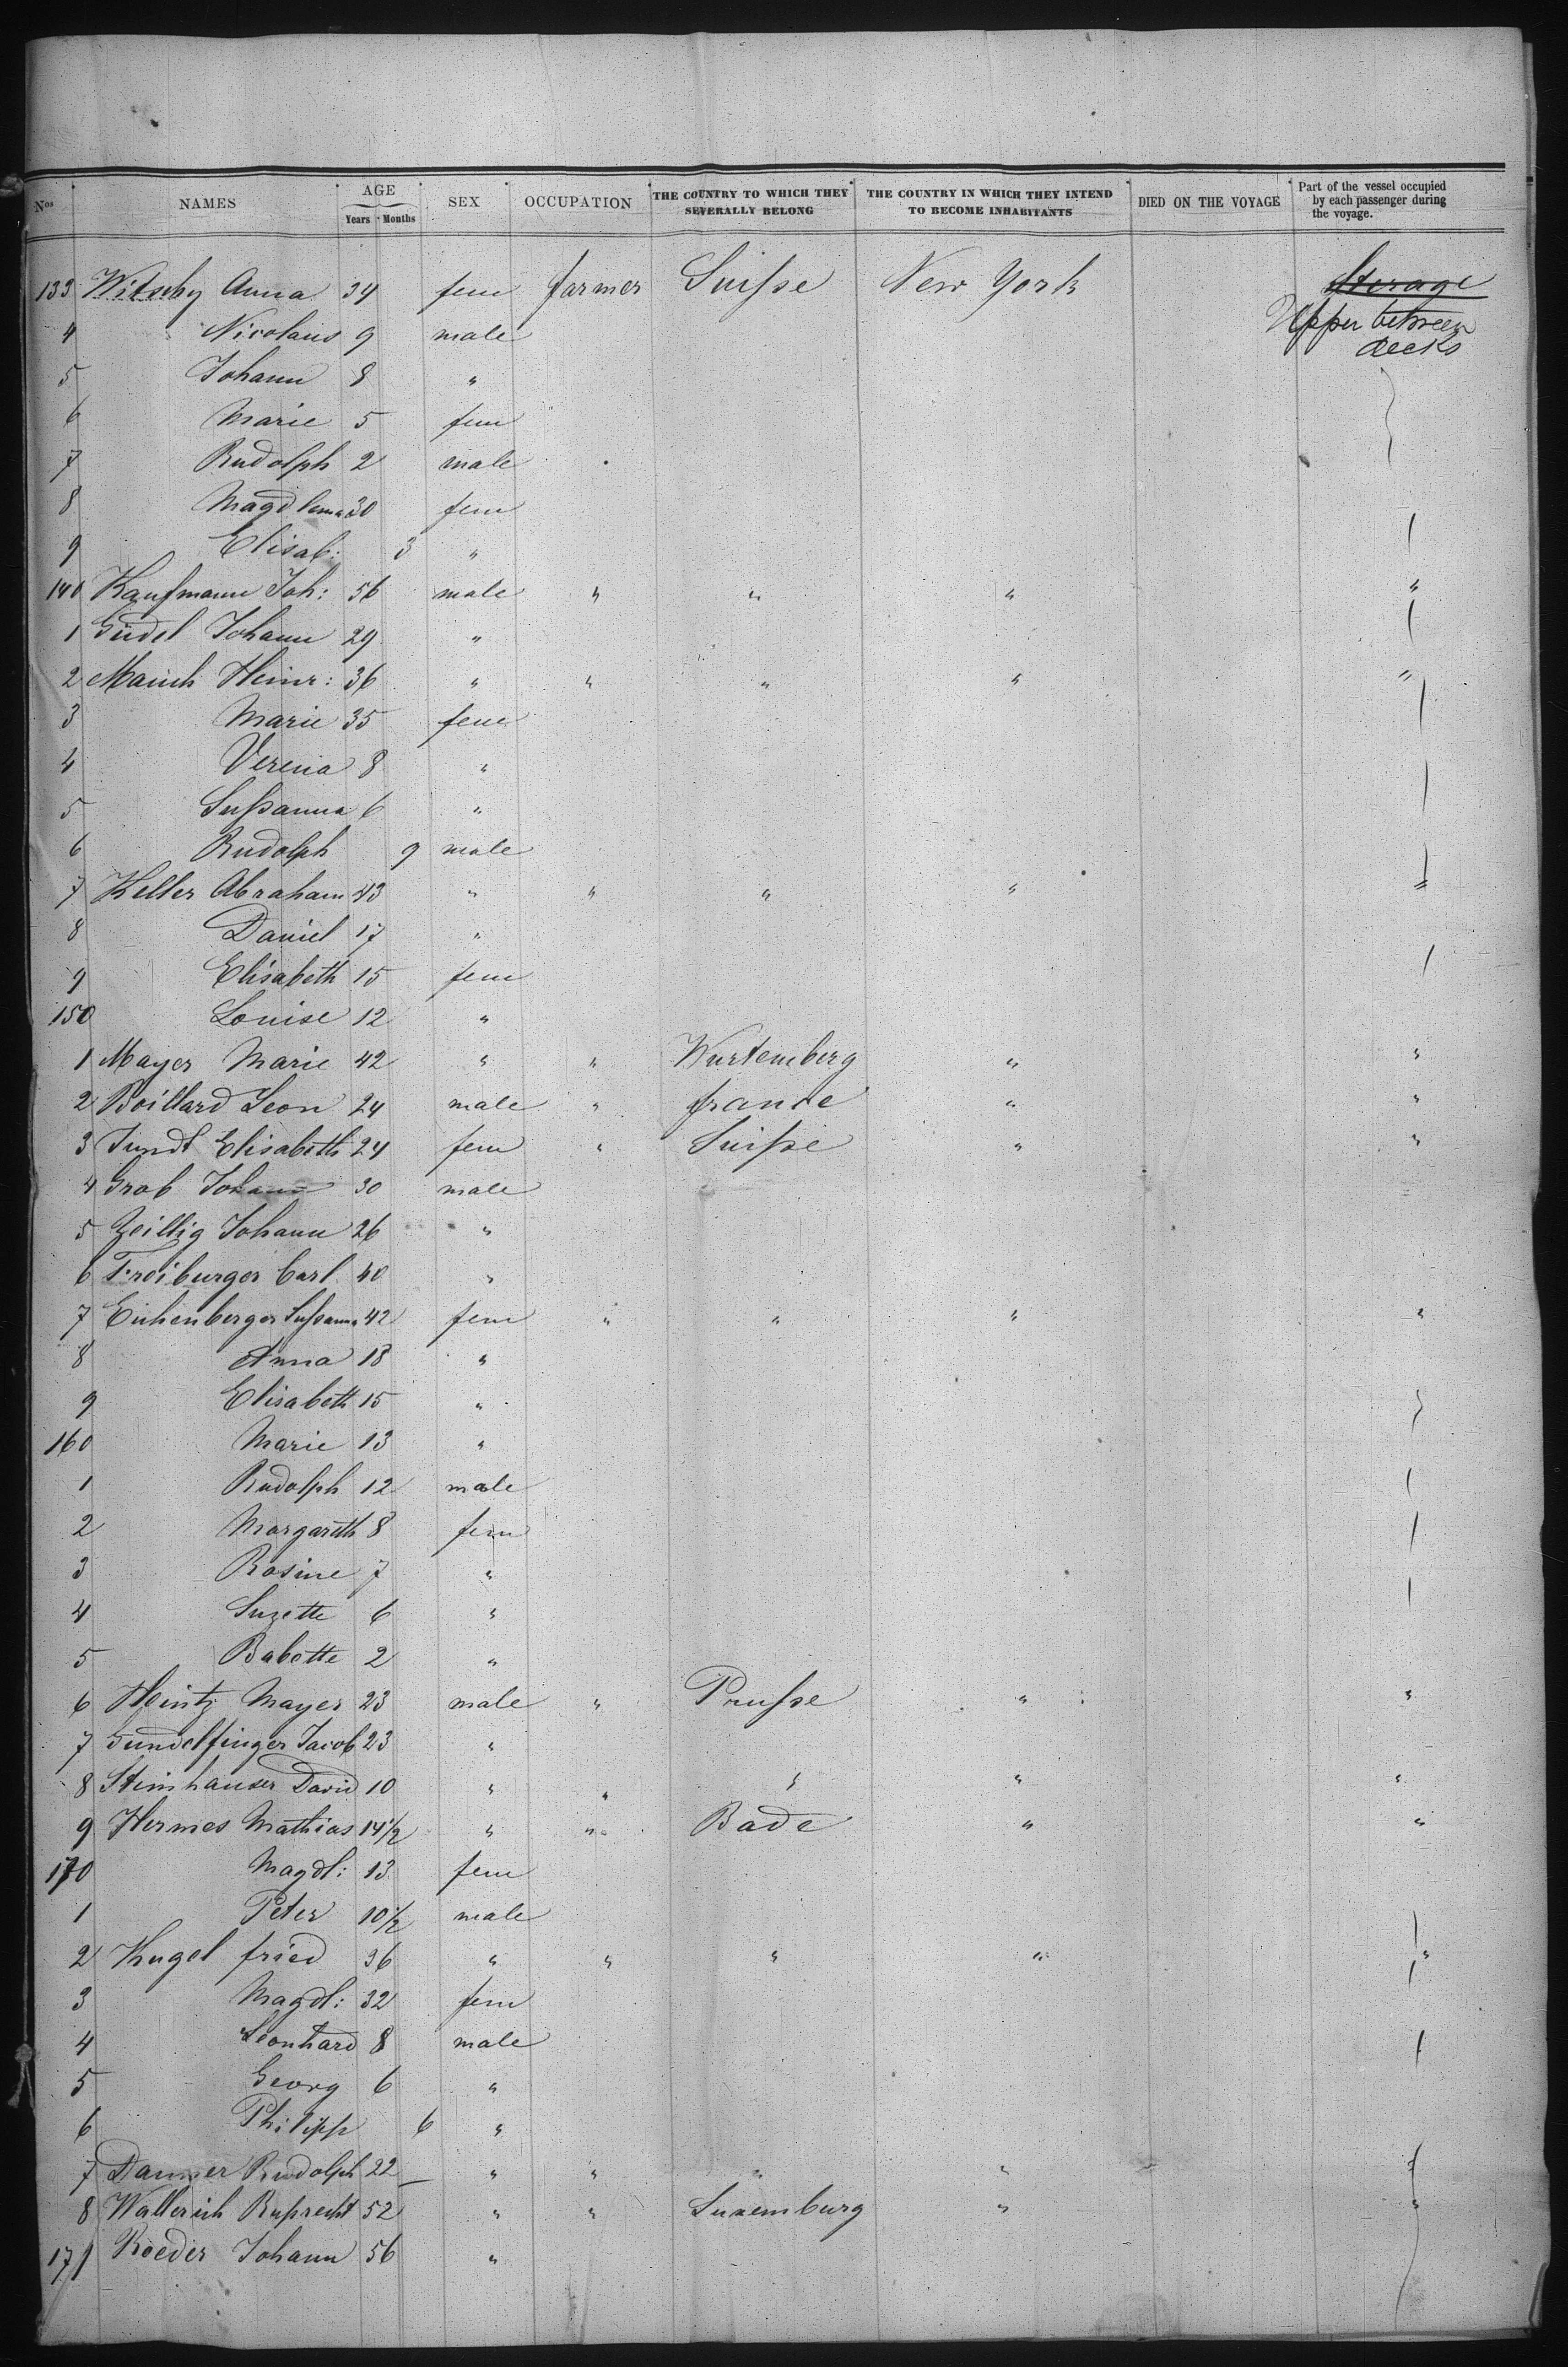 Nos NAMES AGE Years Months SEX OCCUPATION THE COUNTRY TO WHICH THEY SEVERALLY BELONG THE COUNTRY IN WHICH THEY INTEND TO BECOME INHABITANTS DIED ON THE VOYAGE Part of the vessel occupied by each passenger during the voyage.
133 Witschy Anna 34 fem farmer Suisse New York Sterage
4 Nicolaus 9 male Upper between decks
5 Johann 8 "
6 Marie 5 fem
7 Rudolph 2 male
8 Magdlena 30 fem
9 Elisab: 3 "
140 Kaufmann Joh: 56 male " " " "
1 Güdel Johann 29 "
2 Mauch Heinr: 36 " " " " "
3 Marie 35 fem
4 Verena 8 "
5 Sussanna 6 "
6 Rudolph 9 male
7 Keller Abraham 43 " " " " "
8 Daniel 17 "
9 Elisabeth 15 fem
150 Louise 12 "
1 Mayer Marie 42 " " Wurtemberg " "
2 Boillard Leon 24 male " france " "
3 Jundt Elisabeth 24 fem " Suisse " "
4 Grob Johann 30 male
5 Zeillig Johann 26 "
6 Freiburger Carl 40 "
7 Eichenberger Sussanna 42 fem " " " "
8 Anna 18 "
9 Elisabeth 15 "
160 Marie 13 "
1 Rudolph 12 male
2 Margareth 8 fem
3 Rosine 7 "
4 Suzette 6 "
5 Babette 2 "
6 Heintz Mayer 23 male " Prusse " "
7 Gundelfinger Jacob 23 "
8 Steinhauser David 10 " " " " "
9 Hermes Mathias 14 1/2 " " Bade " "
170 Magdl: 13 fem
1 Peter 10 1/2 male
2 Kugel fried 36 " " " " "
3 Magdl: 32 fem
4 Leonhard 8 male
5 Georg 6 "
6 Philipp 6 "
7 Danner Rudolph 22 " " " " "
8 Wallerich Ruprecht 52 " " Luxemburg " "
171 Roeder Johann 56 "